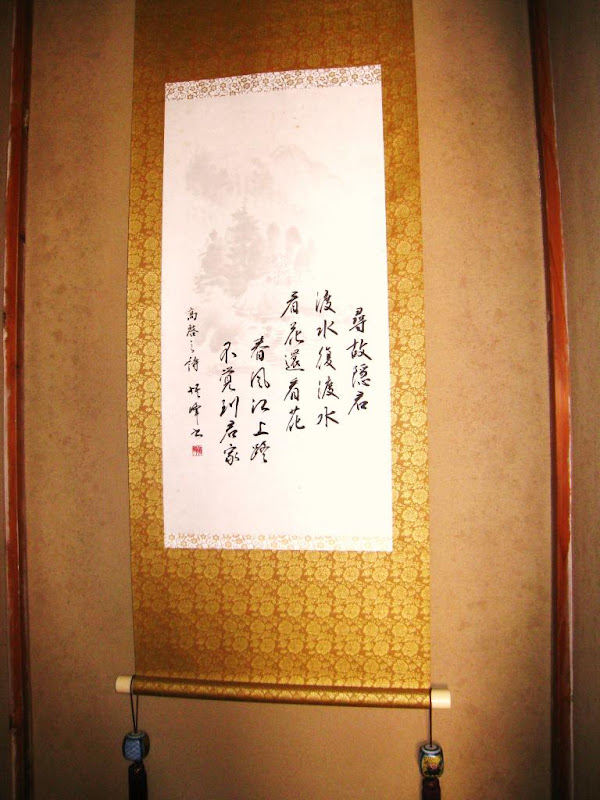 尋故隠君
渡水復渡水
看花還看花
春風江上路
不覚到君家
高啓之詩 峰書